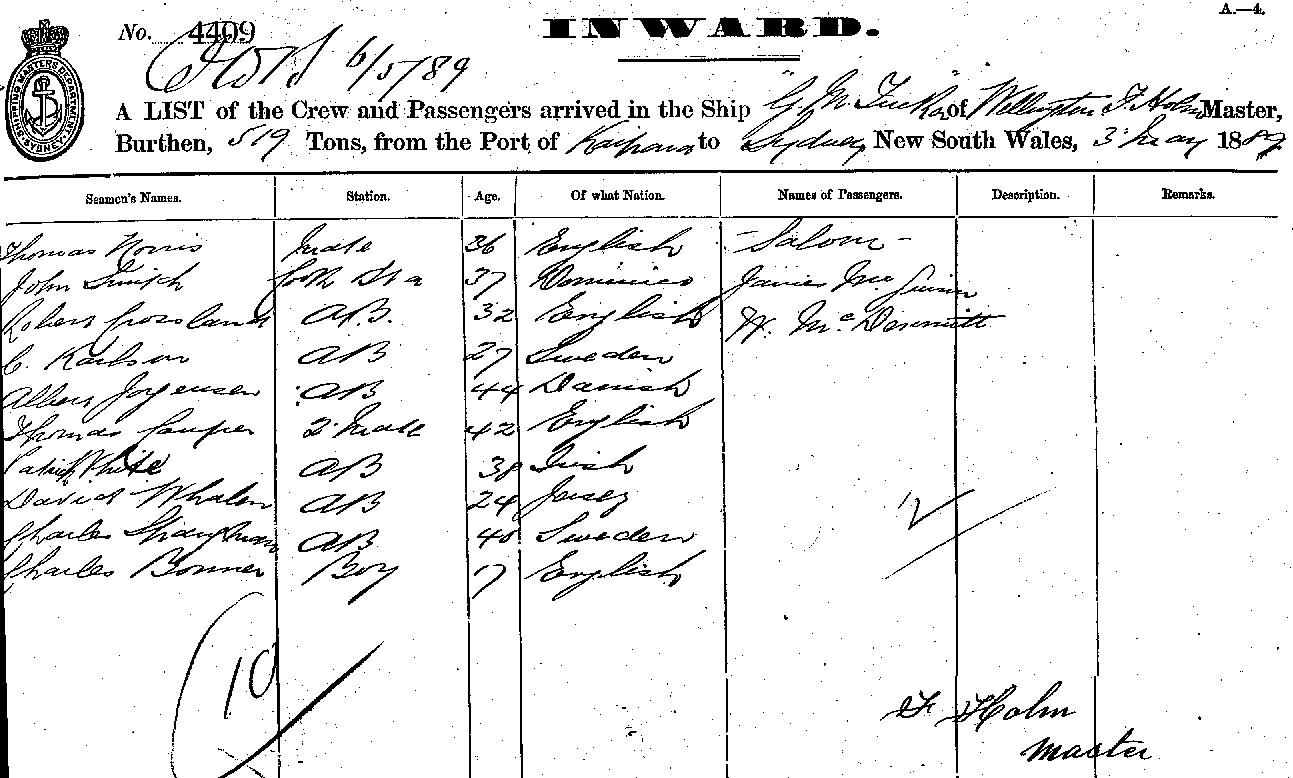 A.—4.
No. 4409
INWARD.
6/5/89
SHIPPING MASTER'S DEPARTMENT SYDNEY
A LIST of the Crew and Passengers arrived in the Ship "G. M. Tucker" of Wellington F Holm Master,
Burthen, 519 Tons, from the Port of Kaipara to Sydney, New South Wales, 3 May 1889
Seamen's Names. Station. Age. Of what Nation. Names of Passengers. Description. Remarks.
Thomas Norris Mate 36 English - Saloon -
John Cook 37 James
Robert Crossland A.B. 32 English W. McDermitt
C. Karlson AB 27 Sweden
Albert Jorgensen AB 44 Danish
Thomas Cowper 2 Mate 42 English
Patrick White AB 38 Irish
David Whalen AB 24 Jersey
Charles AB 40 Sweden
Charles Bonner Boy 17 English
10
F Holm
Master